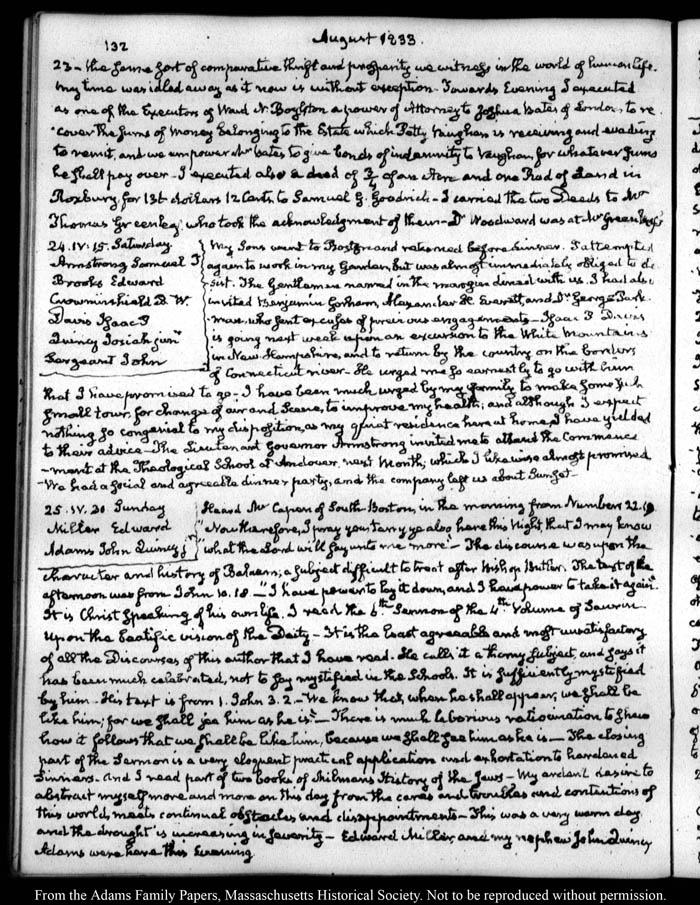 132
August 1833.
23 - the same sort of comparative thrift and prosperity we witness in the world of human life.
My time was idled away as it now is without exception. Towards Evening I executed
as one of the Executors of Ward N. Boylston a power of Attorney to Joshua Bates of London, to re-
cover the sums of money belonging to the Estate which Petty Vaughan is receiving and evading
to remit, and we empower Mr Bates to give bonds of indemnity to Vaughan, for whatever sums
he shall pay over - I executed also a deed of 3/4 of an Acre and one Rod of Land in
Roxbury, for 136 dollars 12 Cents, to Samuel G. Goodrich - I carried the two Deeds to Mr
Thomas Greenleaf who took the acknowledgment of them - Dr Woodward was at Mr Greenleaf's
24. IV: 15. Saturday
Armstrong Samuel T
Brooks Edward
Crowninshield B. W.
Davis Isaac P
Quincy Josiah junr
Sargeant John
My Sons went to Boston and returned before dinner. I attempted
again to work in my Garden, but was almost immediately obliged to de-
sist. The Gentlemen named in the margin dined with us. I had also
invited Benjamin Gorham, Alexander H. Everett, and Dr George Park-
man, who sent excuses of previous engagements - Isaac P Davis
is going next week upon an excursion to the White Mountains
in New Hampshire, and to return by the country on the borders
of Connecticut river - He urged me so earnestly to go with him
that I have promised to go - I have been much urged by my family to make some such
small tour, for change of air and Scene, to improve my health; and although I expect
nothing so congenial to my disposition, as my quiet residence here at home, I have yielded
to their advice - The Lieutenant Governor Armstrong invited me to attend the Commence
-ment at the Theological School at Andover, next Month, which I likewise almost promised.
We had a social and agreeable dinner party, and the company left us about Sunset -
25. IV. 30 Sunday
Miller Edward
Adams John Quincy j
Heard Mr Capers of South Boston, in the morning from Numbers 22. 19
"Now therefore, I pray you tarry ye also here this Night, that I may know
"what the Lord will say unto me more" - The discourse was upon the
character and history of Balaam; a subject difficult to treat after Bishop Butler. The text of the
afternoon was from John 10. 18 - "I have power to lay it down, and I have power to take it again"
It is Christ speaking of his own life. I read the 6th Sermon of the 4th Volume of Saurin
Upon the beatific vision of the Deity - It is the least agreeable and most unsatisfactory
of all the Discourses of this author that I have read. He calls it a thorny subject, and says it
has been much celebrated, not to say mystified in the Schools. It is sufficiently mystified
by him - His text is from 1. John 3. 2 - We know that, when he shall appear, we shall be
like him; for we shall see him as he is" - There is much laborious ratiocination to shew
how it follows that we shall be like him, because we shall see him as he is - The closing
part of the Sermon is a very eloquent practical application and exhortation to hardened
Sinners. And I read part of two books of Milman's History of the Jews - My ardent desire to
abstract myself more and more on this day from the cares and troubles and contentions of
this world, meets continual obstacles and disappointments - This was a very warm day
and the drought is increasing in severity - Edward Miller, and my nephew John Quincy
Adams were here this Evening
From the Adams Family Papers, Massachusetts Historical Society. Not to be reproduced without permission.